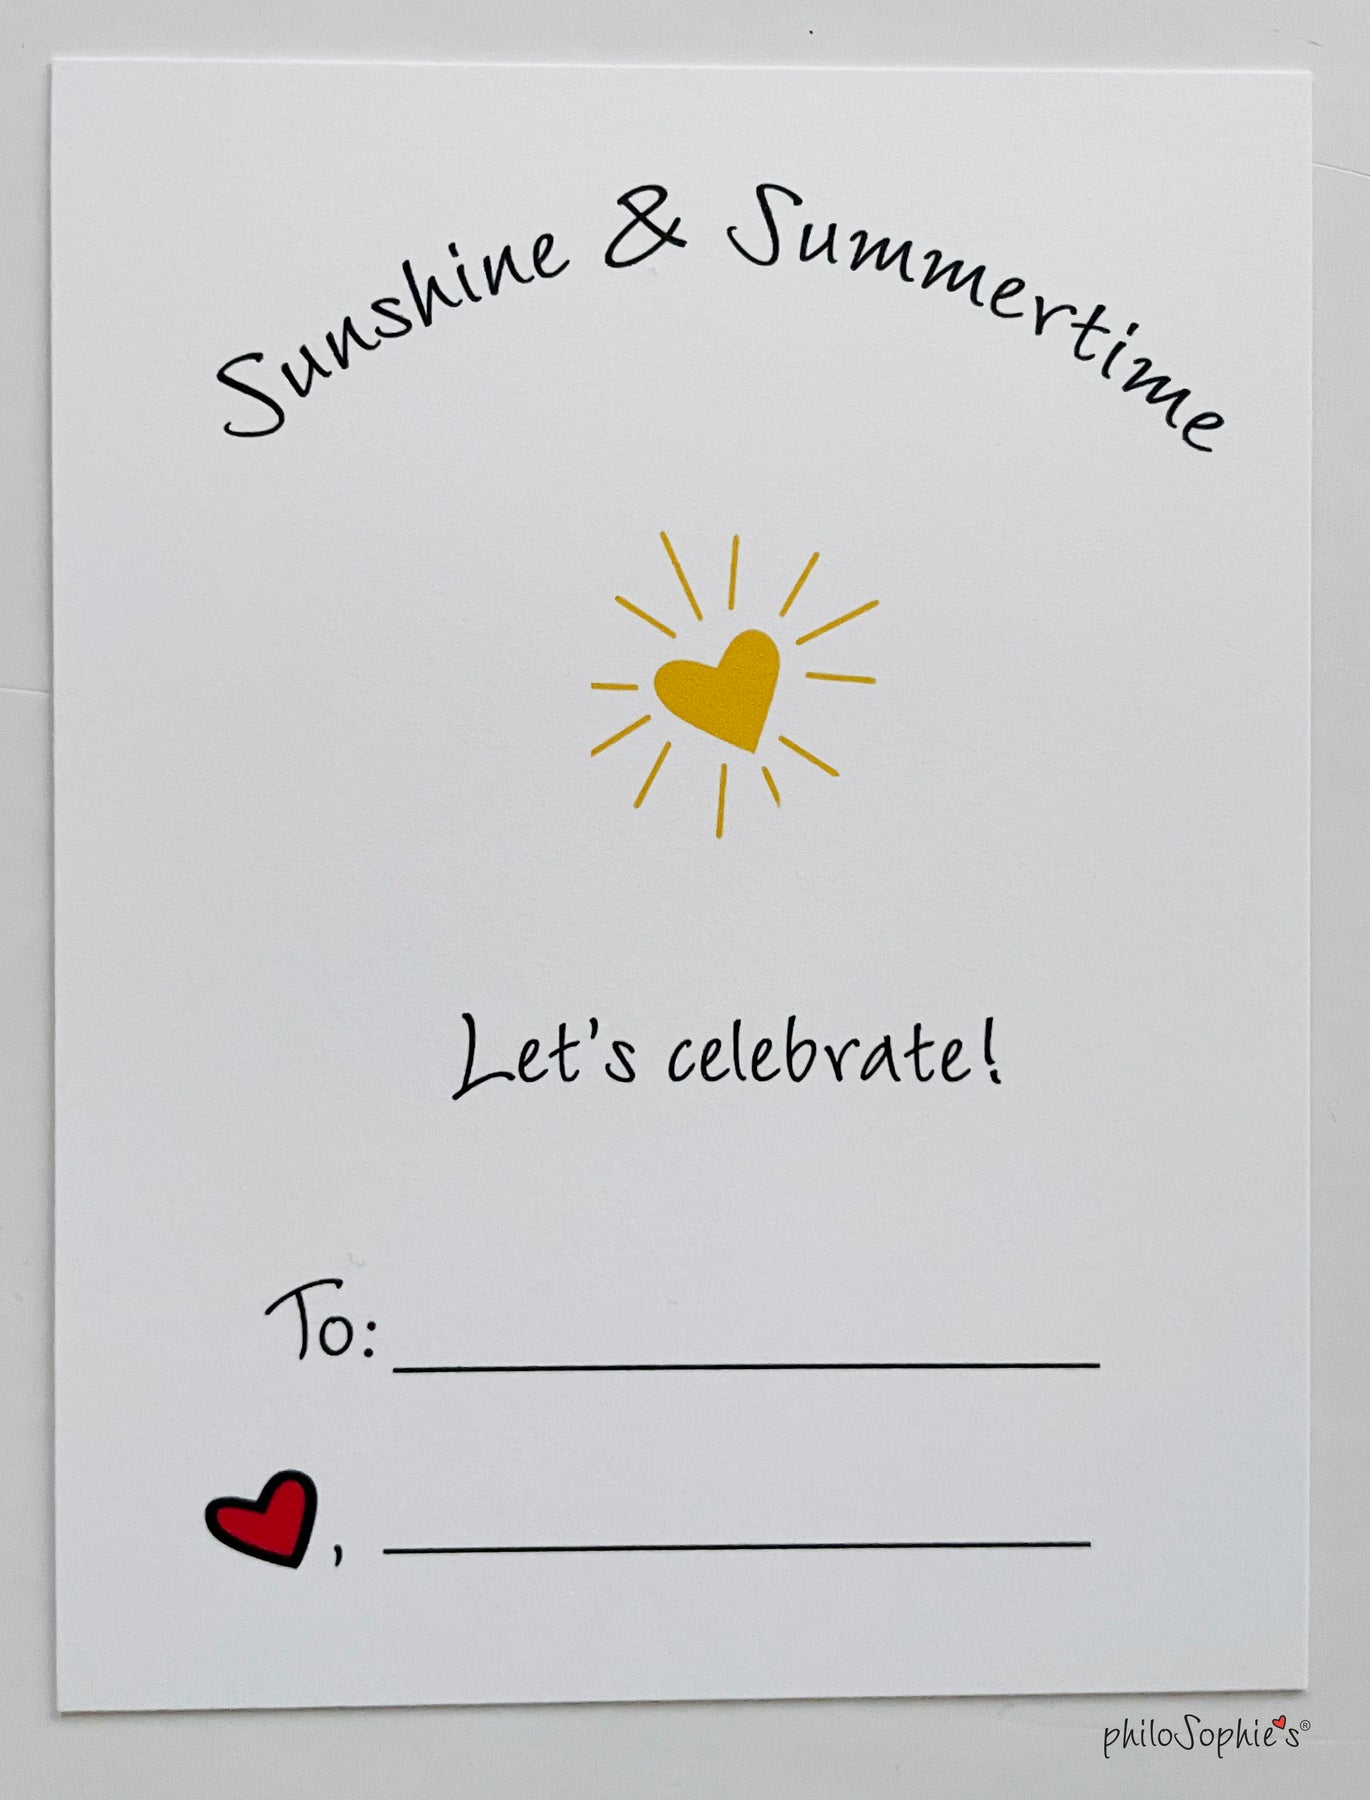 Sunshine & Summertime
Let's celebrate!
To:
,
philoSophie's®